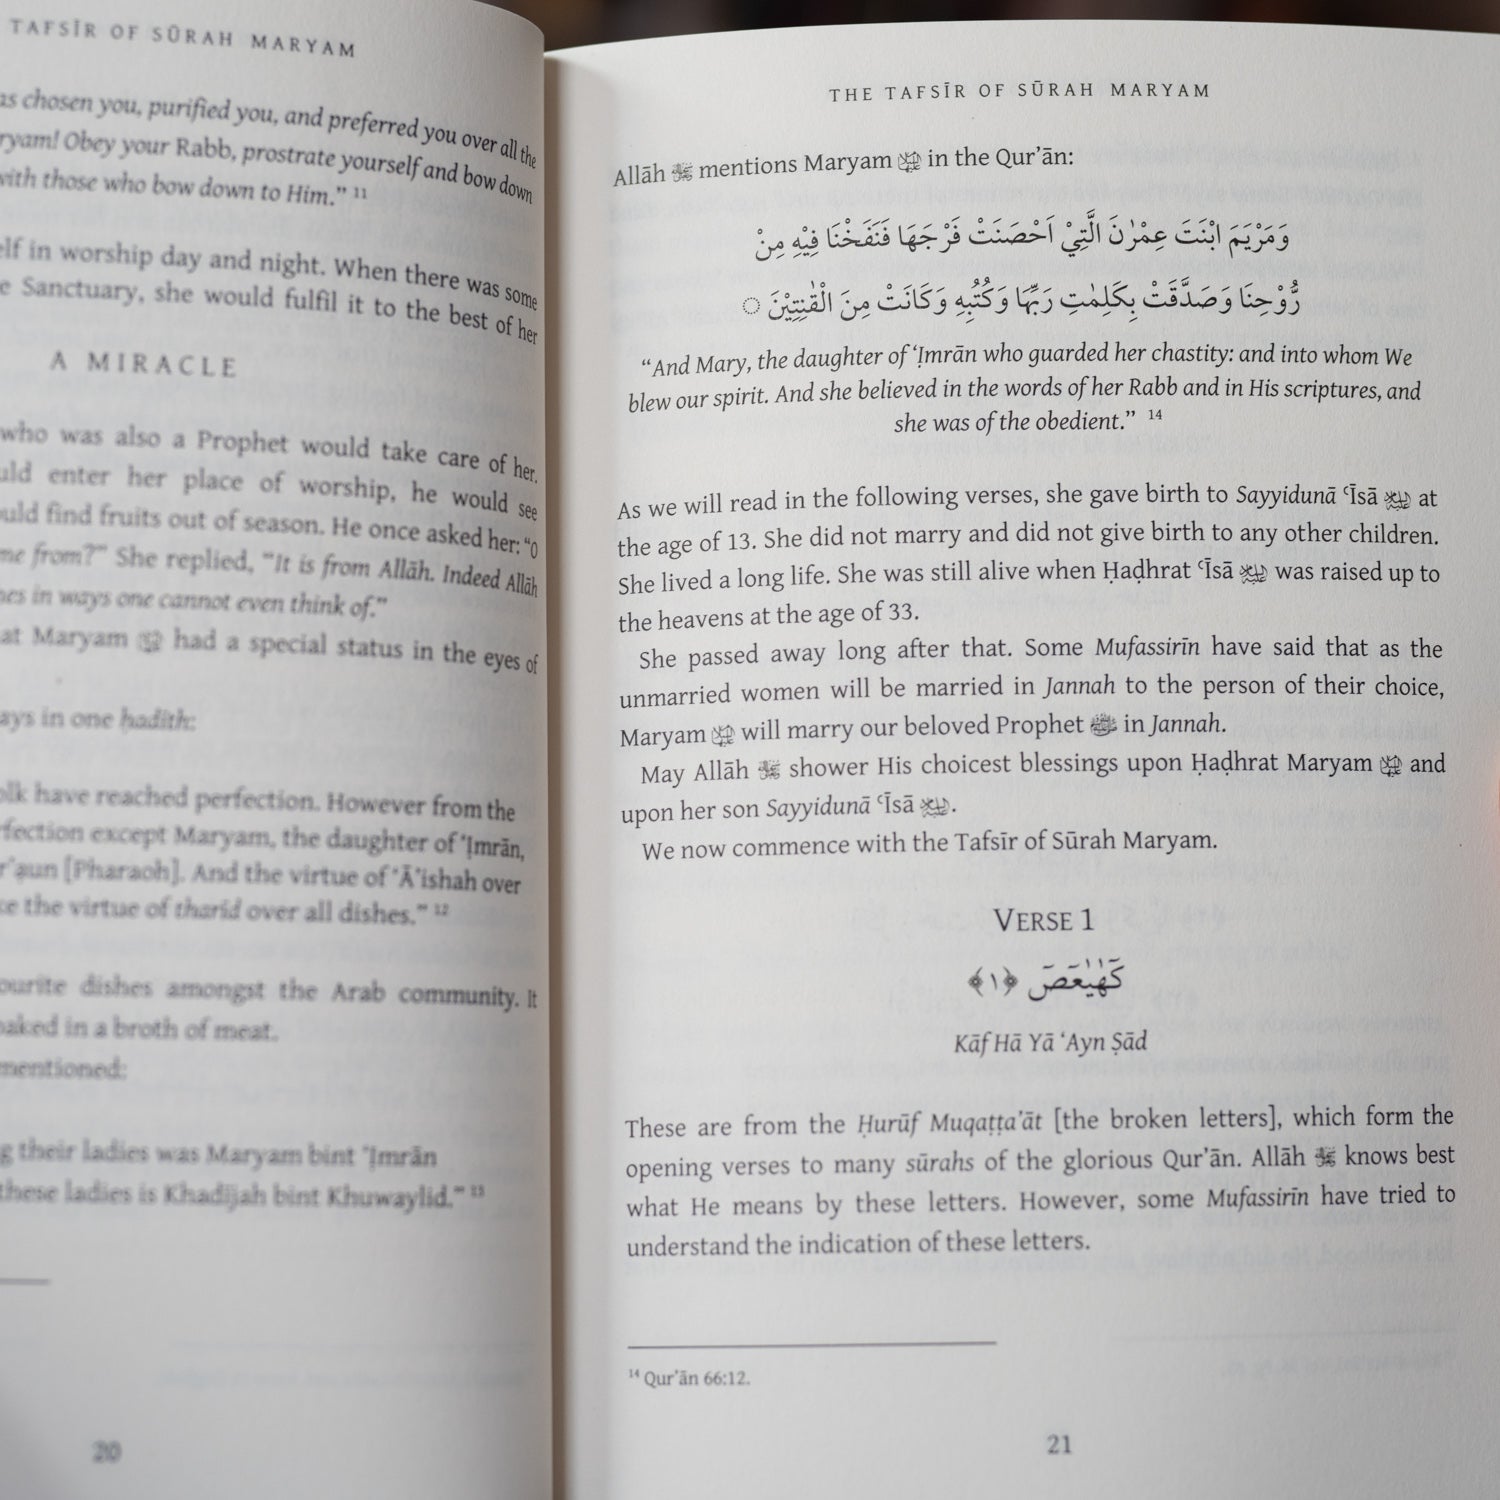 TAFSĪR OF SŪRAH MARYAM
as chosen you, purified you, and preferred you over all the
ryam! Obey your Rabb, prostrate yourself and bow down
with those who bow down to Him.” 11
elf in worship day and night. When there was some
e Sanctuary, she would fulfil it to the best of her
A MIRACLE
who was also a Prophet would take care of her.
uld enter her place of worship, he would see
ould find fruits out of season. He once asked her: “O
me from?” She replied, “It is from Allāh. Indeed Allāh
hes in ways one cannot even think of.”
at Maryam ﷺ had a special status in the eyes of
ays in one ḥadīth:
olk have reached perfection. However from the
rfection except Maryam, the daughter of ʿImrān,
rʿaun [Pharaoh]. And the virtue of ʿĀʾishah over
ke the virtue of tharīd over all dishes.” 12
ourite dishes amongst the Arab community. It
oaked in a broth of meat.
mentioned:
g their ladies was Maryam bint ʿImrān
these ladies is Khadījah bint Khuwaylid.” 13
20
THE TAFSĪR OF SŪRAH MARYAM
Allāh ﷻ mentions Maryam in the Qur’ān:
وَمَرْيَمَ ابْنَتَ عِمْرٰنَ الَّتِيْٓ اَحْصَنَتْ فَرْجَهَا فَنَفَخْنَا فِيْهِ مِنْ
رُّوْحِنَا وَصَدَّقَتْ بِكَلِمٰتِ رَبِّهَا وَكُتُبِهٖ وَكَانَتْ مِنَ الْقٰنِتِيْنَ ۝
“And Mary, the daughter of ‘Imrān who guarded her chastity: and into whom We
blew our spirit. And she believed in the words of her Rabb and in His scriptures, and
she was of the obedient.” 14
As we will read in the following verses, she gave birth to Sayyidunā ʿĪsā at
the age of 13. She did not marry and did not give birth to any other children.
She lived a long life. She was still alive when Ḥaḍhrat ʿĪsā was raised up to
the heavens at the age of 33.
She passed away long after that. Some Mufassirīn have said that as the
unmarried women will be married in Jannah to the person of their choice,
Maryam will marry our beloved Prophet ﷺ in Jannah.
May Allāh ﷻ shower His choicest blessings upon Ḥaḍhrat Maryam and
upon her son Sayyidunā ʿĪsā.
We now commence with the Tafsīr of Sūrah Maryam.
VERSE 1
كٓهٰيٰعٓصٓ ﴿١﴾
Kāf Hā Yā ‘Ayn Ṣād
These are from the Ḥurūf Muqaṭṭa’āt [the broken letters], which form the
opening verses to many sūrahs of the glorious Qur’ān. Allāh ﷻ knows best
what He means by these letters. However, some Mufassirīn have tried to
understand the indication of these letters.
14 Qur’ān 66:12.
21